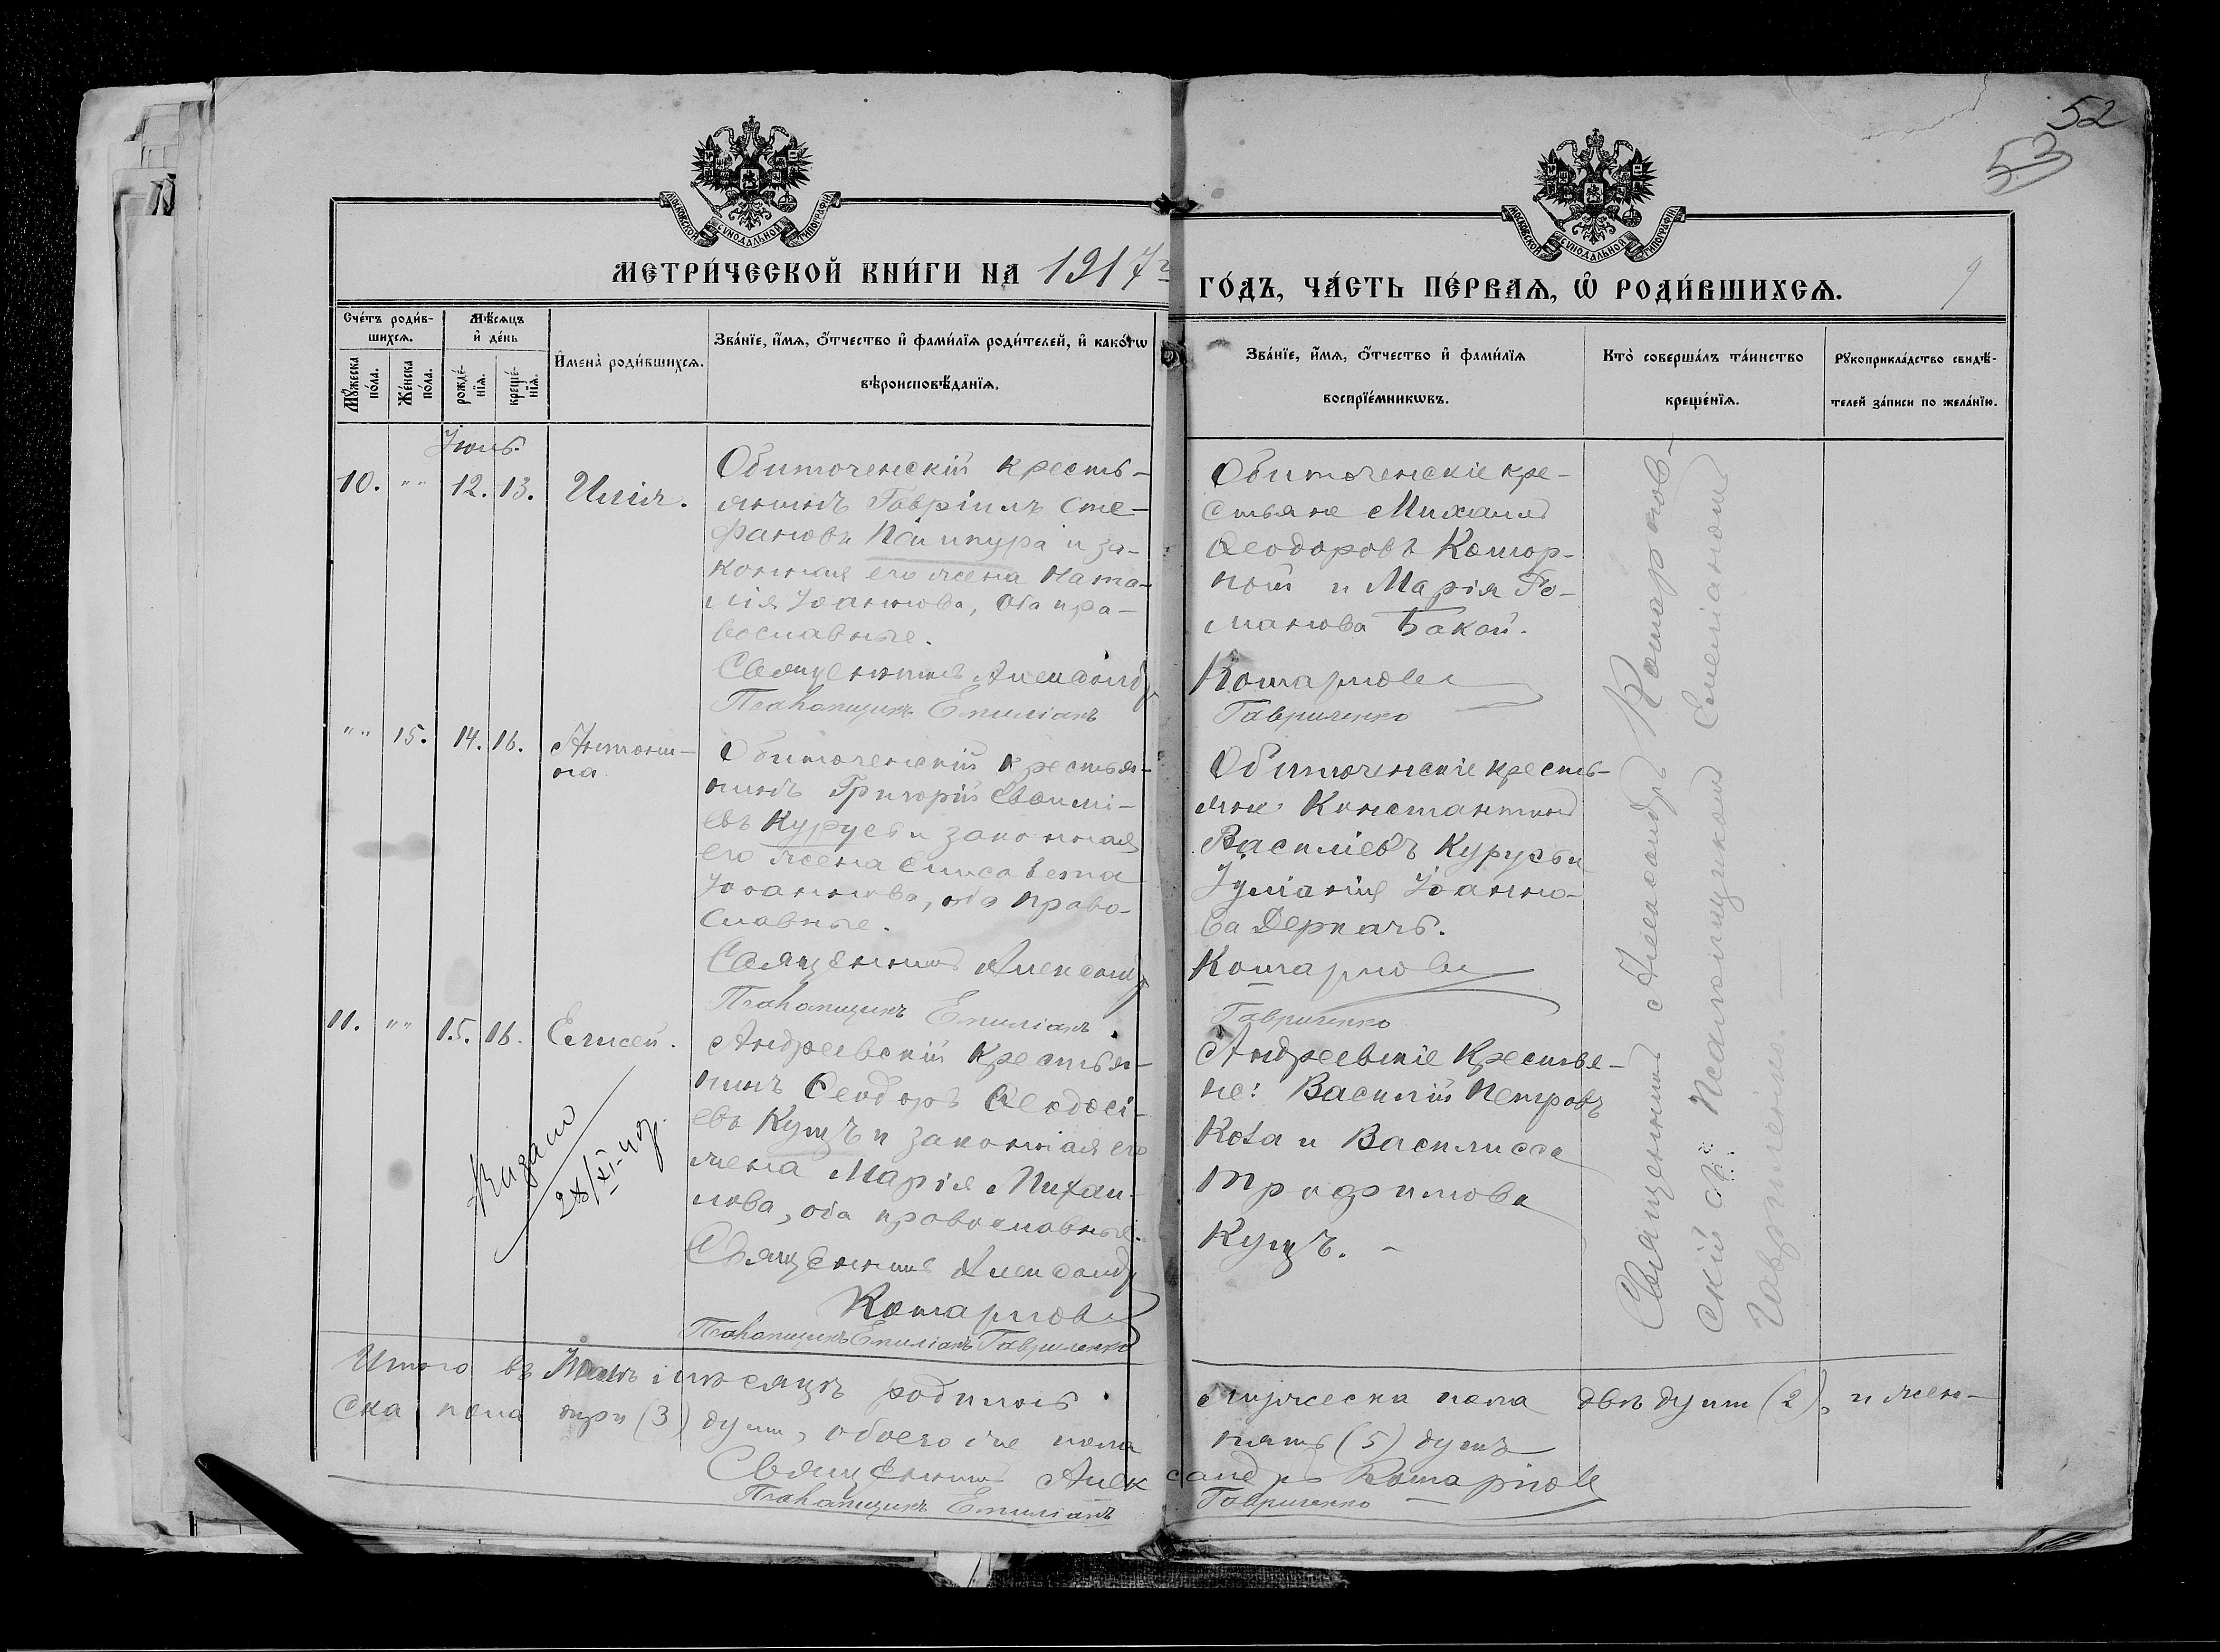 52
53
МОСКОВСКОЙ СѴНОДАЛЬНОЙ ТИПОГРАФІИ
МОСКОВСКОЙ СѴНОДАЛЬНОЙ ТИПОГРАФІИ
МЕТРИ́ЧЕСКОЙ КНИ́ГИ НА 1917 г
ГО́ДЪ, ЧА́СТЬ ПЕ́РВАѦ, Ѡ҆ РОДИ́ВШИХСѦ.
9
Сче́тъ роди́в-
шихсѧ.
Мꙋ́жеска по́ла.
Же́нска по́ла.
Мѣ́сѧцъ
и҆ де́нь
рожде́-нїѧ.
креще́-нїѧ.
И҆мена̀ роди́вшихсѧ.
Зва́нїе, и҆́мѧ, ѻ҆́тчество и҆ фами́лїѧ роди́телей, и҆ како́гѡ
вѣроисповѣ́данїѧ.
Зва́нїе, и҆́мѧ, ѻ҆́тчество и҆ фами́лїѧ
воспрїе́мникѡвъ.
Кто̀ соверша́лъ та́инство
креще́нїѧ.
Рꙋкоприкла́дство свидѣ́-
телей за́писи по жела́нїю.
Іюль.
10. " " 12. 13. Илія.
Обиточенскій кресть-
янинъ Гавріилъ Сте-
фановъ Паипура и за-
конная его жена Ната-
лія Іоаннова, оба пра-
вославные.
Священникъ Александръ
Псаломщикъ Емиліанъ
Обиточенскіе кре-
стьяне Михаилъ
Ѳеодоровъ Комор-
ный и Марія Ро-
манова Бакай.
Комарновъ
Гавриленко
" " 15. 14. 16. Антони-
на
Обиточенскій крестья-
нинъ Григорій Васи-
евъ Курусь и законная
его жена Елисавета
Іоаннова, оба право-
славные.
Священникъ Александръ
Псаломщикъ Емиліанъ
Обиточенскіе кресть-
яне: Константинъ
Василіевъ Курусь и
Іуліанія Іоанно-
ва Деркачъ.
Гавриленко
11. " " 15. 16. Елисей.
Андреевскій крестья-
нинъ Ѳеодоръ Ѳеодосі-
евъ Кущъ и законная его
жена Марія Михаи-
лова, оба православные.
Священникъ Александръ
Псаломщикъ Емиліанъ Гавриленко
Андреевскіе крестья-
не: Василій Петровъ
Коза и Василисса
Трофимова
Кущъ. -
Видано
28/XI
Священникъ Александръ
скій съ Псаломщикомъ Емеліаномъ
Гавриленко.
Итого въ Іюлѣ мѣсяцѣ родилось мужеска пола двѣ душ (2), и жен-
ска пола три (3) душ, обоего же пола пять (5) душъ
Священникъ Александръ
Псаломщикъ Емиліанъ Гавриленко